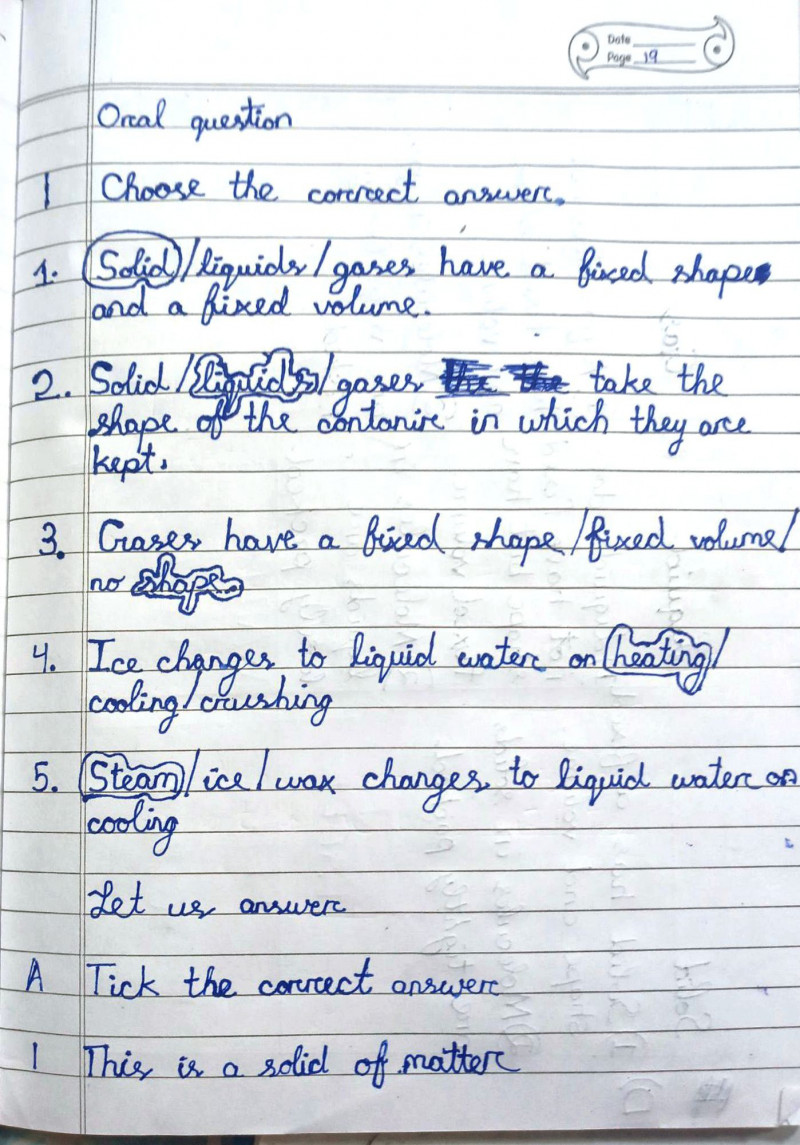 Date
Page 19
Oral question
1 Choose the correct answer.
1. Solid/liquids/gases have a fixed shape
and a fixed volume.
2. Solid/liquids/gases take the
shape of the contanire in which they are
kept.
3. Gases have a fixed shape/fixed volume/
no shape.
4. Ice changes to liquid water on heating/
cooling/crushing
5. Steam/ice/wax changes to liquid water on
cooling
Let us answer
A Tick the correct answer
1 This is a solid of matter